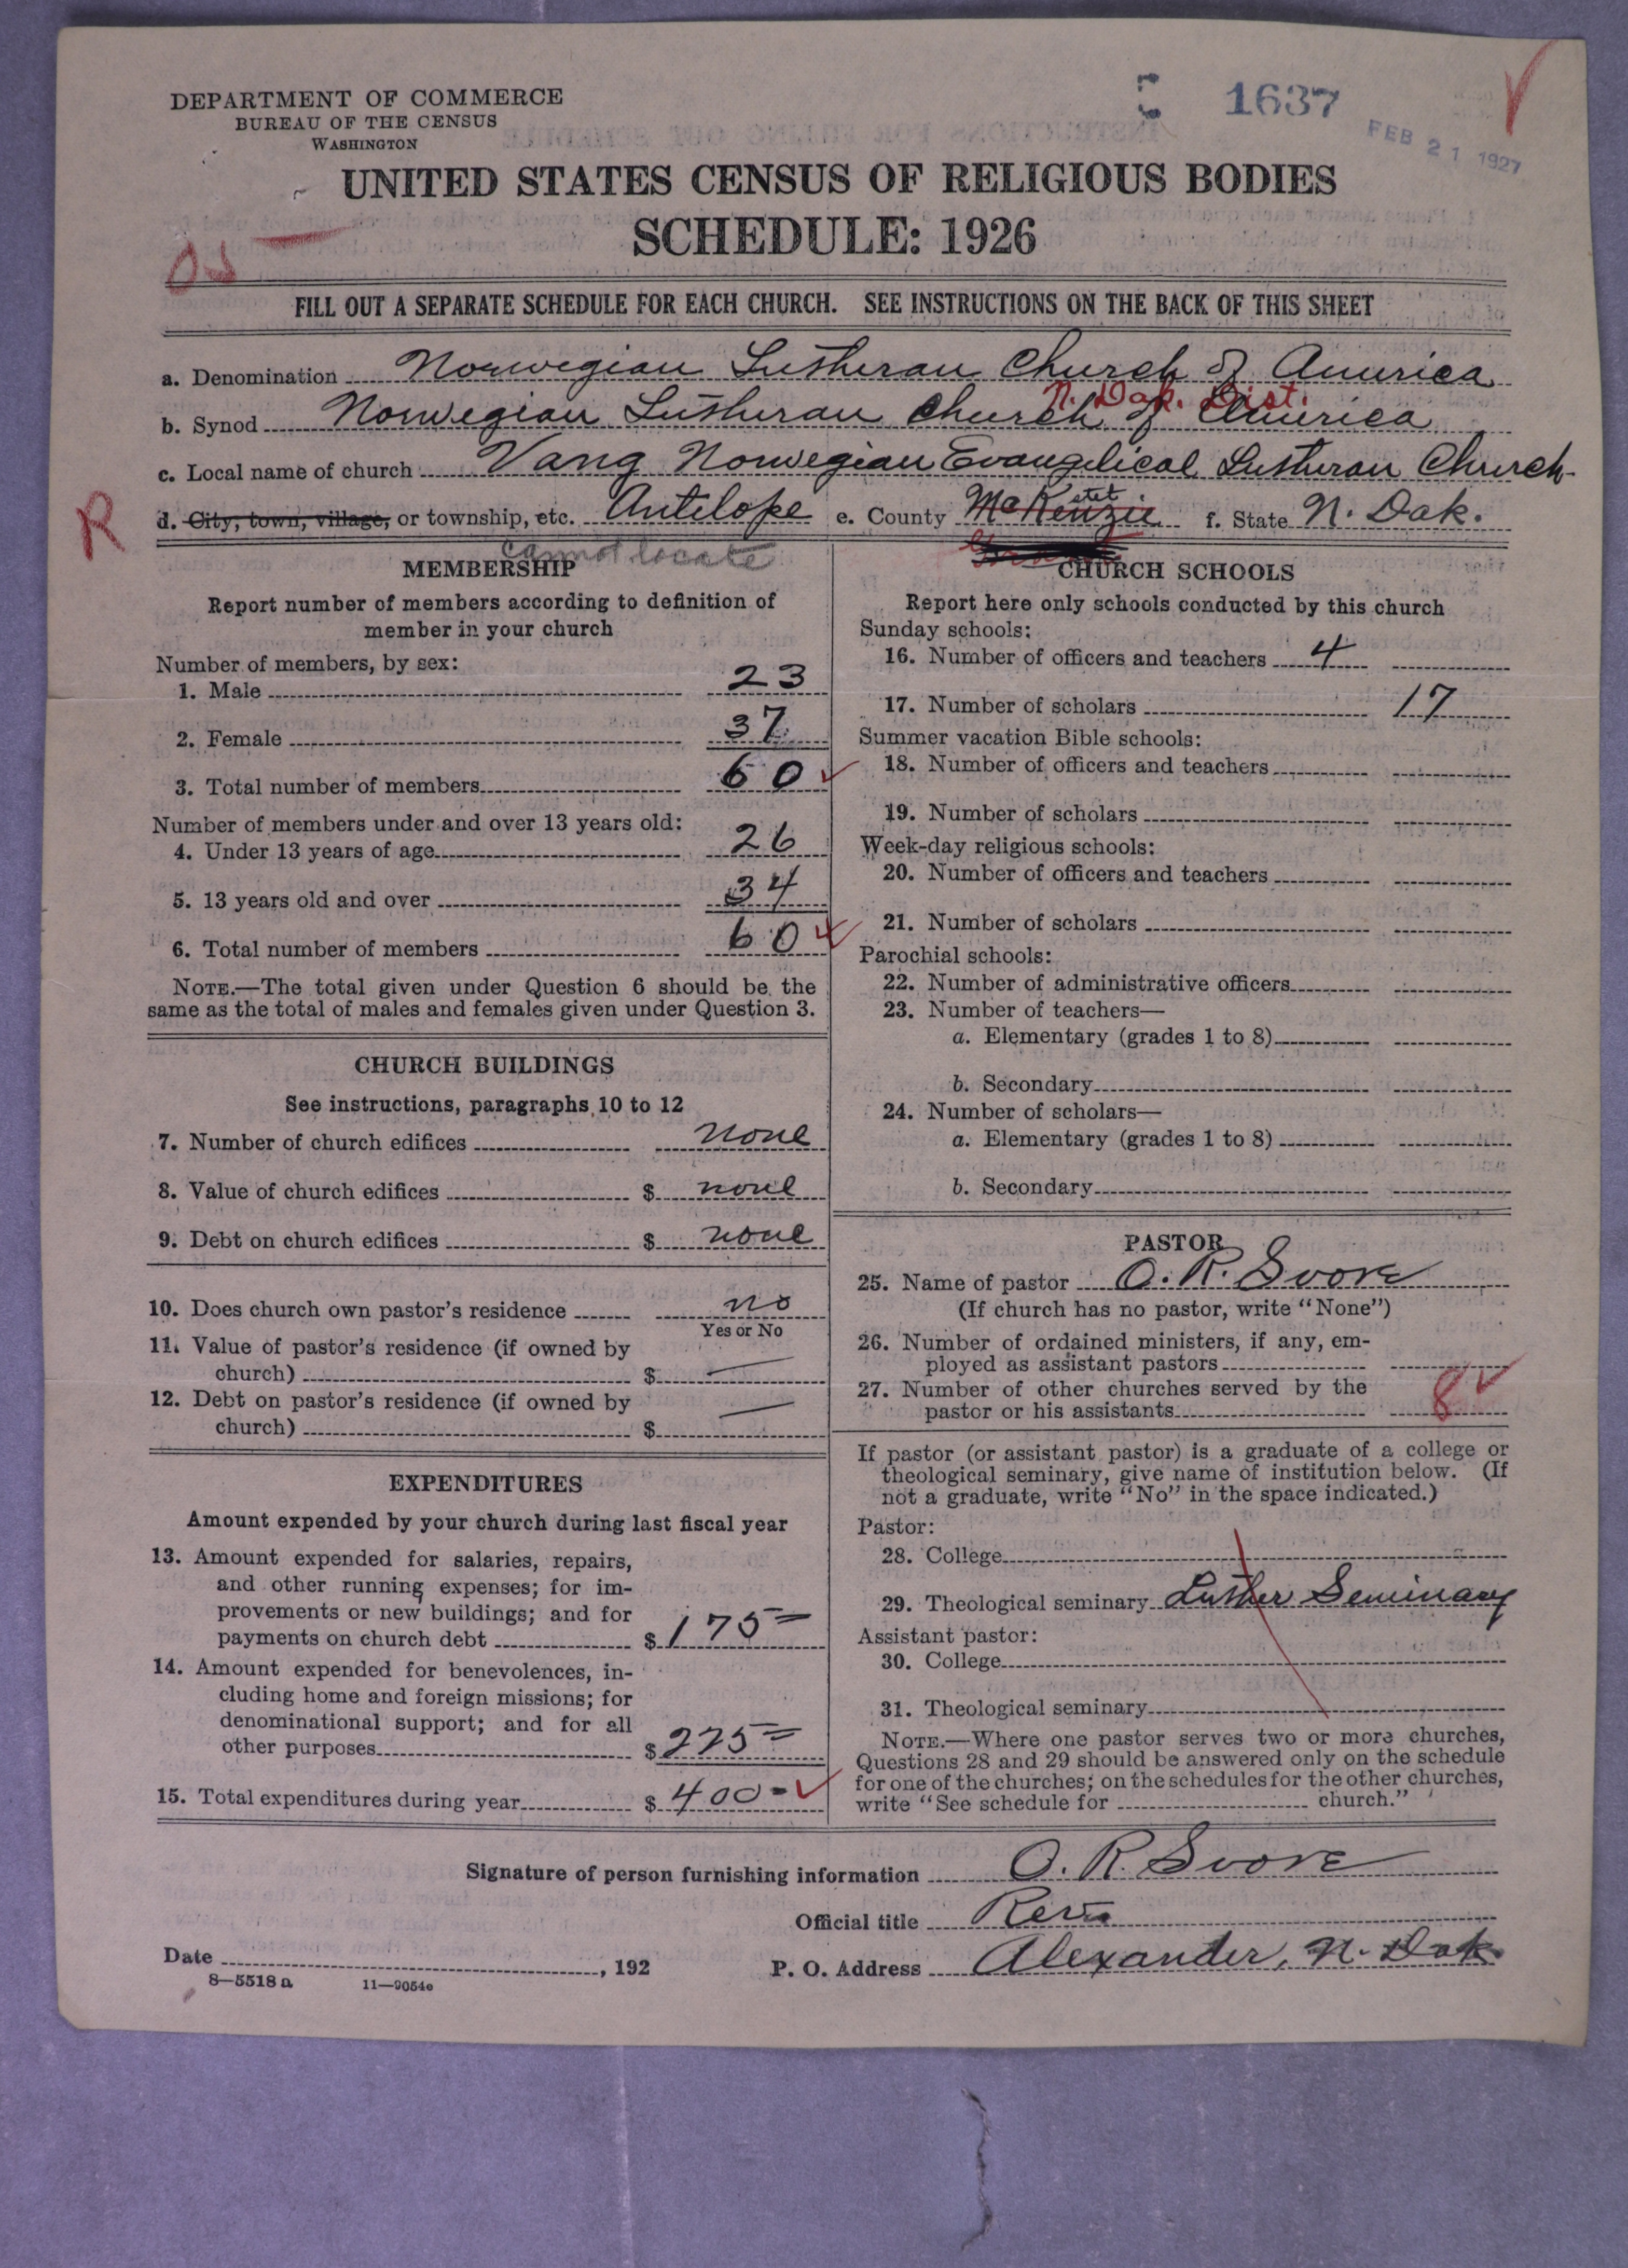 DEPARTMENT OF COMMERCE
BUREAU OF THE CENSUS
WASHINGTON
1637
FEB 21 1927
UNITED STATES CENSUS OF RELIGIOUS BODIES
SCHEDULE: 1926
FILL OUT A SEPARATE SCHEDULE FOR EACH CHURCH. SEE INSTRUCTIONS ON THE BACK OF THIS SHEET
a. Denomination Norwegian Lutheran Church of America
N. Dak. Dist.
b. Synod Norwegian Lutheran Church of America
c. Local name of church Vang Norwegian Evangelical Lutheran Church
R
d. City, town, village, or township, etc. Antilope e. County McKenzie stet f. State N. Dak.
cannot locate
MEMBERSHIP
Report number of members according to definition of
member in your church
Number of members, by sex:
1. Male 23
2. Female 37
3. Total number of members 60
Number of members under and over 13 years old:
4. Under 13 years of age 26
5. 13 years old and over 34
6. Total number of members 60
NOTE.—The total given under Question 6 should be the
same as the total of males and females given under Question 3.
CHURCH BUILDINGS
See instructions, paragraphs 10 to 12
7. Number of church edifices none
8. Value of church edifices $ none
9. Debt on church edifices $ none
10. Does church own pastor's residence no
Yes or No
11. Value of pastor's residence (if owned by
church) $ —
12. Debt on pastor's residence (if owned by
church) $ —
EXPENDITURES
Amount expended by your church during last fiscal year
13. Amount expended for salaries, repairs,
and other running expenses; for im-
provements or new buildings; and for
payments on church debt $ 175=
14. Amount expended for benevolences, in-
cluding home and foreign missions; for
denominational support; and for all
other purposes $ 225=
15. Total expenditures during year $ 400=
CHURCH SCHOOLS
Report here only schools conducted by this church
Sunday schools:
16. Number of officers and teachers 4
17. Number of scholars 17
Summer vacation Bible schools:
18. Number of officers and teachers
19. Number of scholars
Week-day religious schools:
20. Number of officers and teachers
21. Number of scholars
Parochial schools:
22. Number of administrative officers
23. Number of teachers—
a. Elementary (grades 1 to 8)
b. Secondary
24. Number of scholars—
a. Elementary (grades 1 to 8)
b. Secondary
PASTOR
25. Name of pastor O. R. Svore
(If church has no pastor, write "None")
26. Number of ordained ministers, if any, em-
ployed as assistant pastors
27. Number of other churches served by the
pastor or his assistants 8
If pastor (or assistant pastor) is a graduate of a college or
theological seminary, give name of institution below. (If
not a graduate, write "No" in the space indicated.)
Pastor:
28. College
29. Theological seminary Luther Seminary
Assistant pastor:
30. College
31. Theological seminary
NOTE.—Where one pastor serves two or more churches,
Questions 28 and 29 should be answered only on the schedule
for one of the churches; on the schedules for the other churches,
write "See schedule for church."
Signature of person furnishing information O. R. Svore
Official title Rev.
Date , 192
P. O. Address Alexander, N. Dak.
8—5518 a 11—9054c